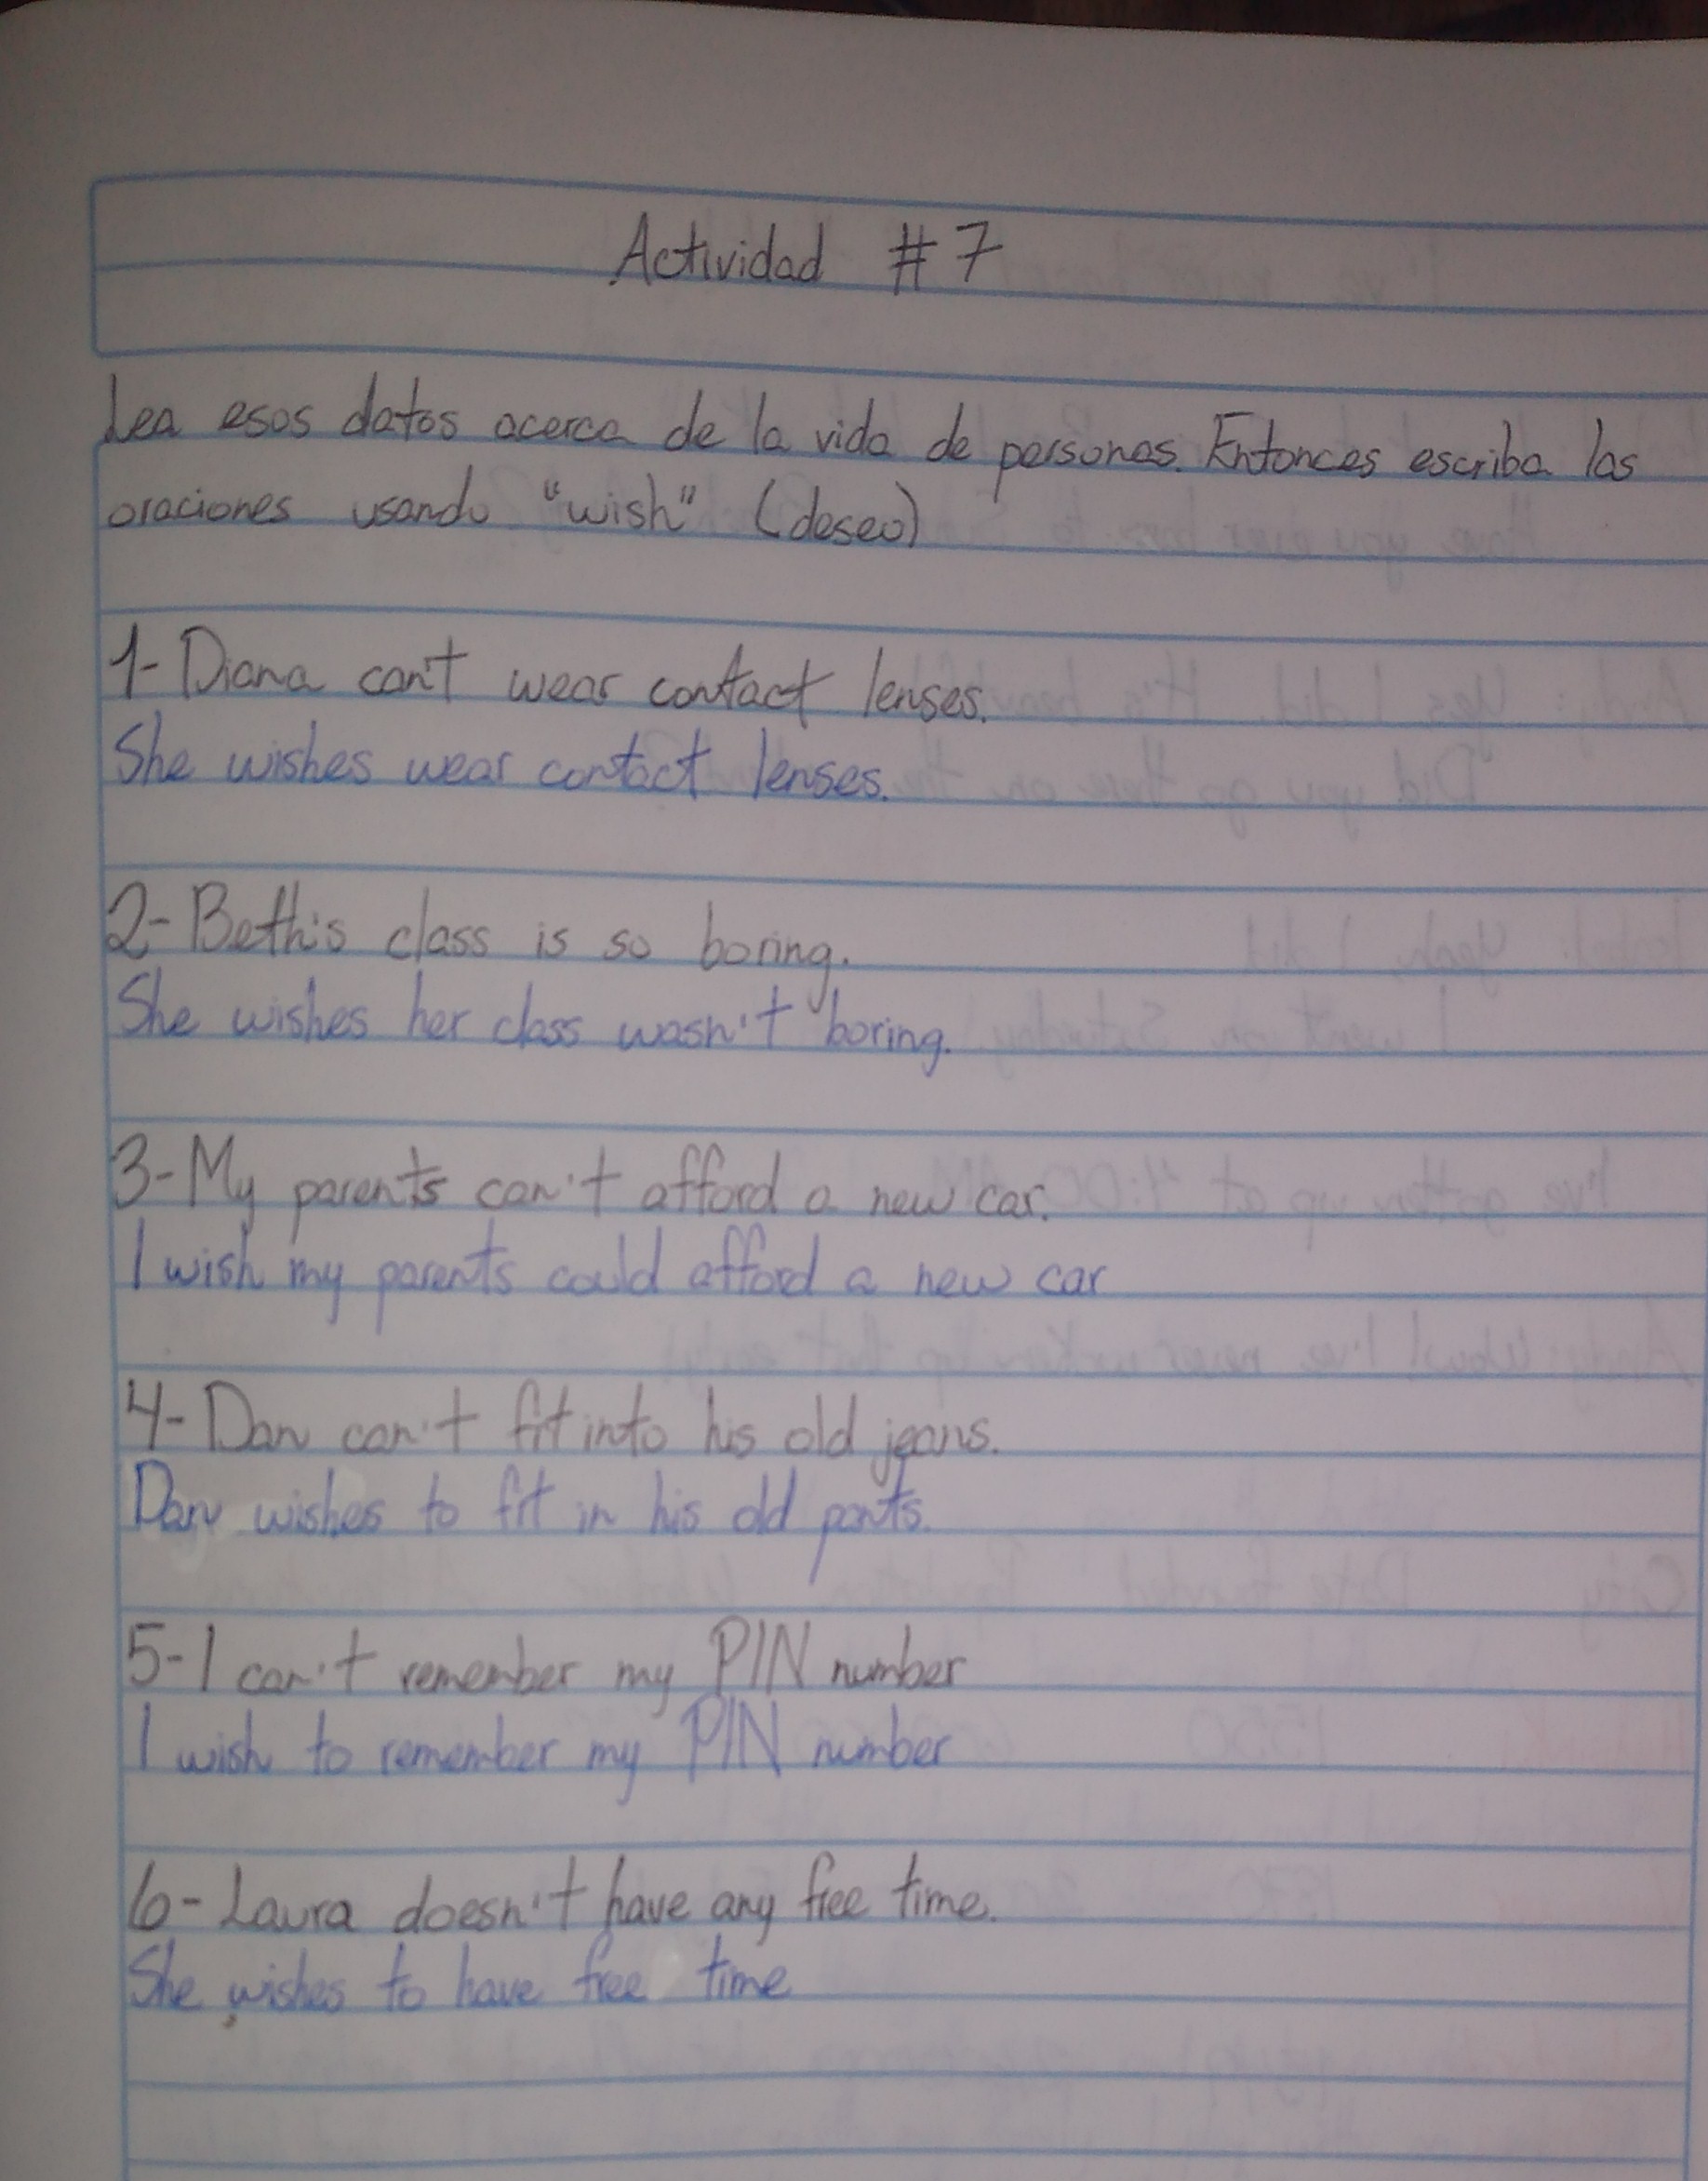 Actividad #7
Lea esos datos acerca de la vida de personas. Entonces escriba las
oraciones usando "wish" (deseo)
1- Diana can't wear contact lenses.
She wishes wear contact lenses.
2- Beth's class is so boring.
She wishes her class wasn't boring.
3- My parents can't afford a new car.
I wish my parents could afford a new car
4- Dan can't fit into his old jeans.
Dan wishes to fit in his old pants.
5- I can't remember my PIN number
I wish to remember my PIN number
6- Laura doesn't have any free time.
She wishes to have free time